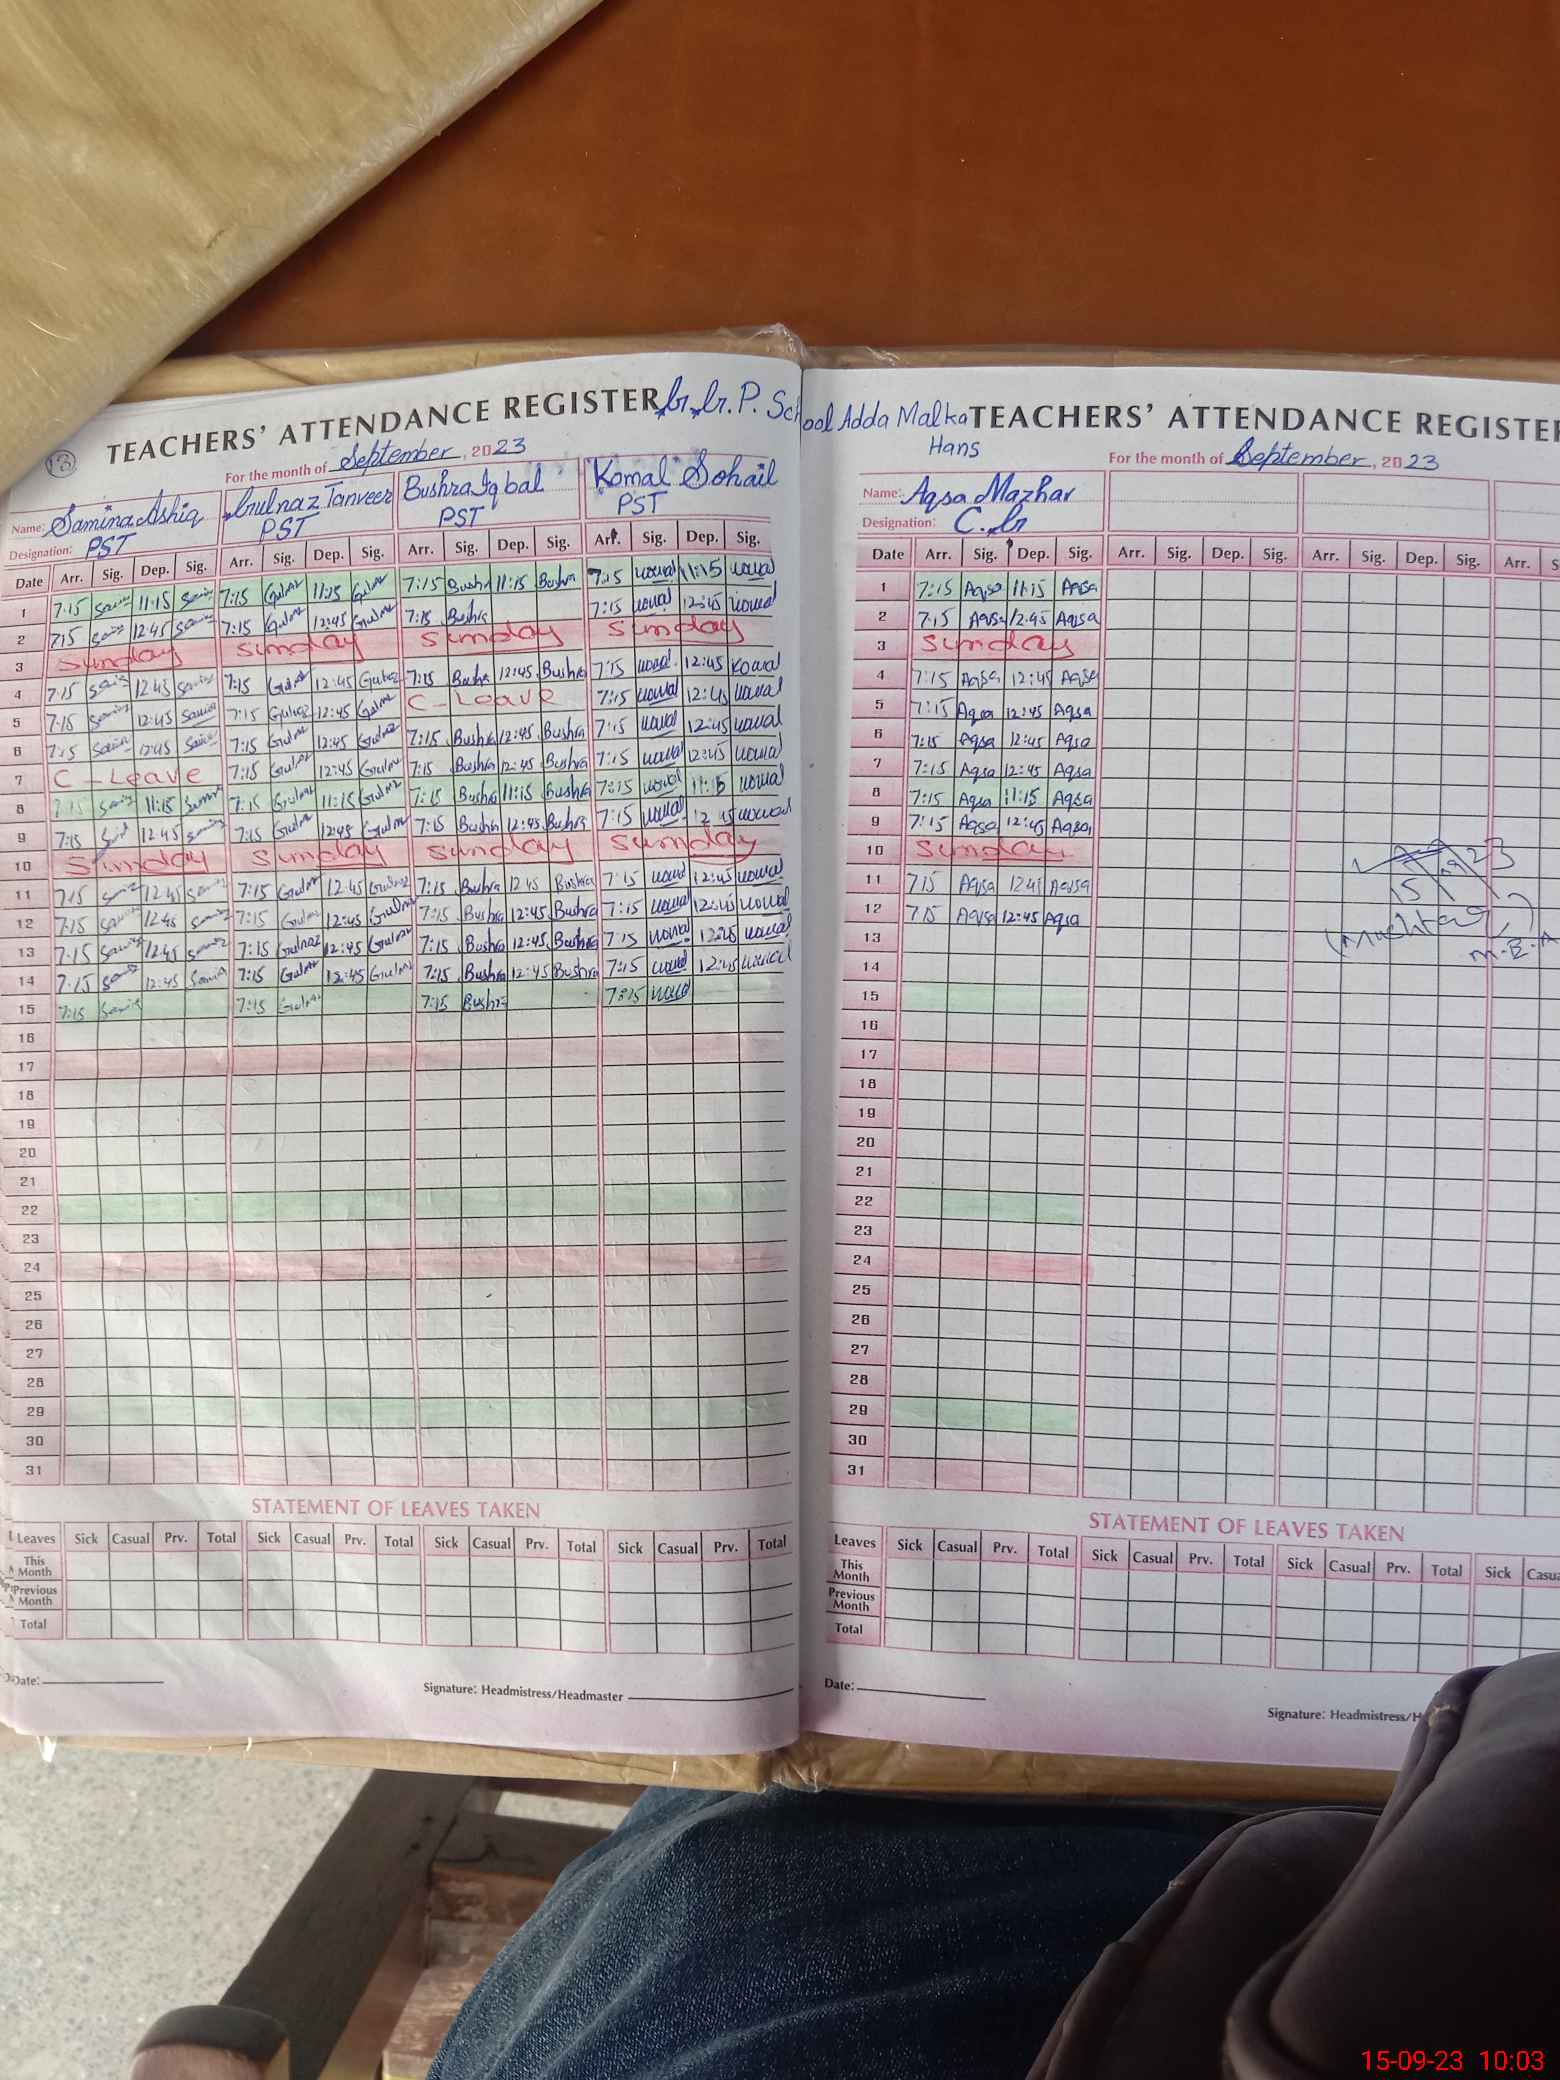 TEACHERS' ATTENDANCE REGISTER G.G.P. School Adda Malka TEACHERS' ATTENDANCE REGISTER
Hans
13
For the month of September, 2023
For the month of September, 2023
Name: Samina Ashiq Gulnaz Tanveer Bushra Iqbal Komal Sohail
Designation: PST PST PST PST
Name: Aqsa Mazhar
Designation: C.G
Date Arr. Sig. Dep. Sig. Arr. Sig. Dep. Sig. Arr. Sig. Dep. Sig. Arr. Sig. Dep. Sig.
1 7:15 11:15 7:15 Gulnaz 11:15 Gulnaz 7:15 Bushra 11:15 Bushra 7:15 11:15
2 7:15 12:45 7:15 Gulnaz 12:45 Gulnaz 7:15 Bushra 7:15 12:45
3 Sunday Sunday Sunday Sunday
4 7:15 12:45 7:15 Gulnaz 12:45 Gulnaz 7:15 Bushra 12:45 Bushra 7:15 12:45
5 7:15 12:45 7:15 Gulnaz 12:45 Gulnaz C-Leave 7:15 12:45
6 7:15 12:45 7:15 Gulnaz 12:45 Gulnaz 7:15 Bushra 12:45 Bushra 7:15 12:45
7 C-Leave 7:15 Gulnaz 12:45 Gulnaz 7:15 Bushra 12:45 Bushra 7:15 12:45
8 7:15 11:15 7:15 Gulnaz 11:15 Gulnaz 7:15 Bushra 11:15 Bushra 7:15 11:15
9 7:15 12:45 7:15 Gulnaz 12:45 Gulnaz 7:15 Bushra 12:45 Bushra 7:15 12:45
10 Sunday Sunday Sunday Sunday
11 7:15 12:45 7:15 Gulnaz 12:45 Gulnaz 7:15 Bushra 12:45 Bushra 7:15 12:45
12 7:15 12:45 7:15 Gulnaz 12:45 Gulnaz 7:15 Bushra 12:45 Bushra 7:15 12:45
13 7:15 12:45 7:15 Gulnaz 12:45 Gulnaz 7:15 Bushra 12:45 Bushra 7:15 12:45
14 7:15 12:45 7:15 Gulnaz 12:45 Gulnaz 7:15 Bushra 12:45 Bushra 7:15 12:45
15 7:15 7:15 Gulnaz 7:15 Bushra 7:15
16
17
18
19
20
21
22
23
24
25
26
27
28
29
30
31
STATEMENT OF LEAVES TAKEN
Leaves Sick Casual Prv. Total Sick Casual Prv. Total Sick Casual Prv. Total Sick Casual Prv. Total
This Month
Previous Month
Total
Date:
Signature: Headmistress/Headmaster
Date Arr. Sig. Dep. Sig. Arr. Sig. Dep. Sig. Arr. Sig. Dep. Sig. Arr.
1 7:15 Aqsa 11:15 Aqsa
2 7:15 Aqsa 12:45 Aqsa
3 Sunday
4 7:15 Aqsa 12:45 Aqsa
5 7:15 Aqsa 12:45 Aqsa
6 7:15 Aqsa 12:45 Aqsa
7 7:15 Aqsa 12:45 Aqsa
8 7:15 Aqsa 11:15 Aqsa
9 7:15 Aqsa 12:45 Aqsa
10 Sunday
11 7:15 Aqsa 12:45 Aqsa
12 7:15 Aqsa 12:45 Aqsa
13
14
15
16
17
18
19
20
21
22
23
24
25
26
27
28
29
30
31
15 9 23
Mushtaq
M.E.A
STATEMENT OF LEAVES TAKEN
Leaves Sick Casual Prv. Total Sick Casual Prv. Total Sick Casual Prv. Total Sick
This Month
Previous Month
Total
Date:
Signature: Headmistress/H
15-09-23 10:03